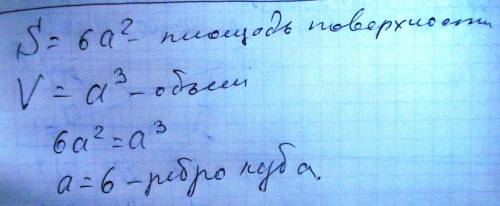 S = 6a² - площадь поверхности
V = a³ - объем
6a² = a³
a = 6 - ребро куба.